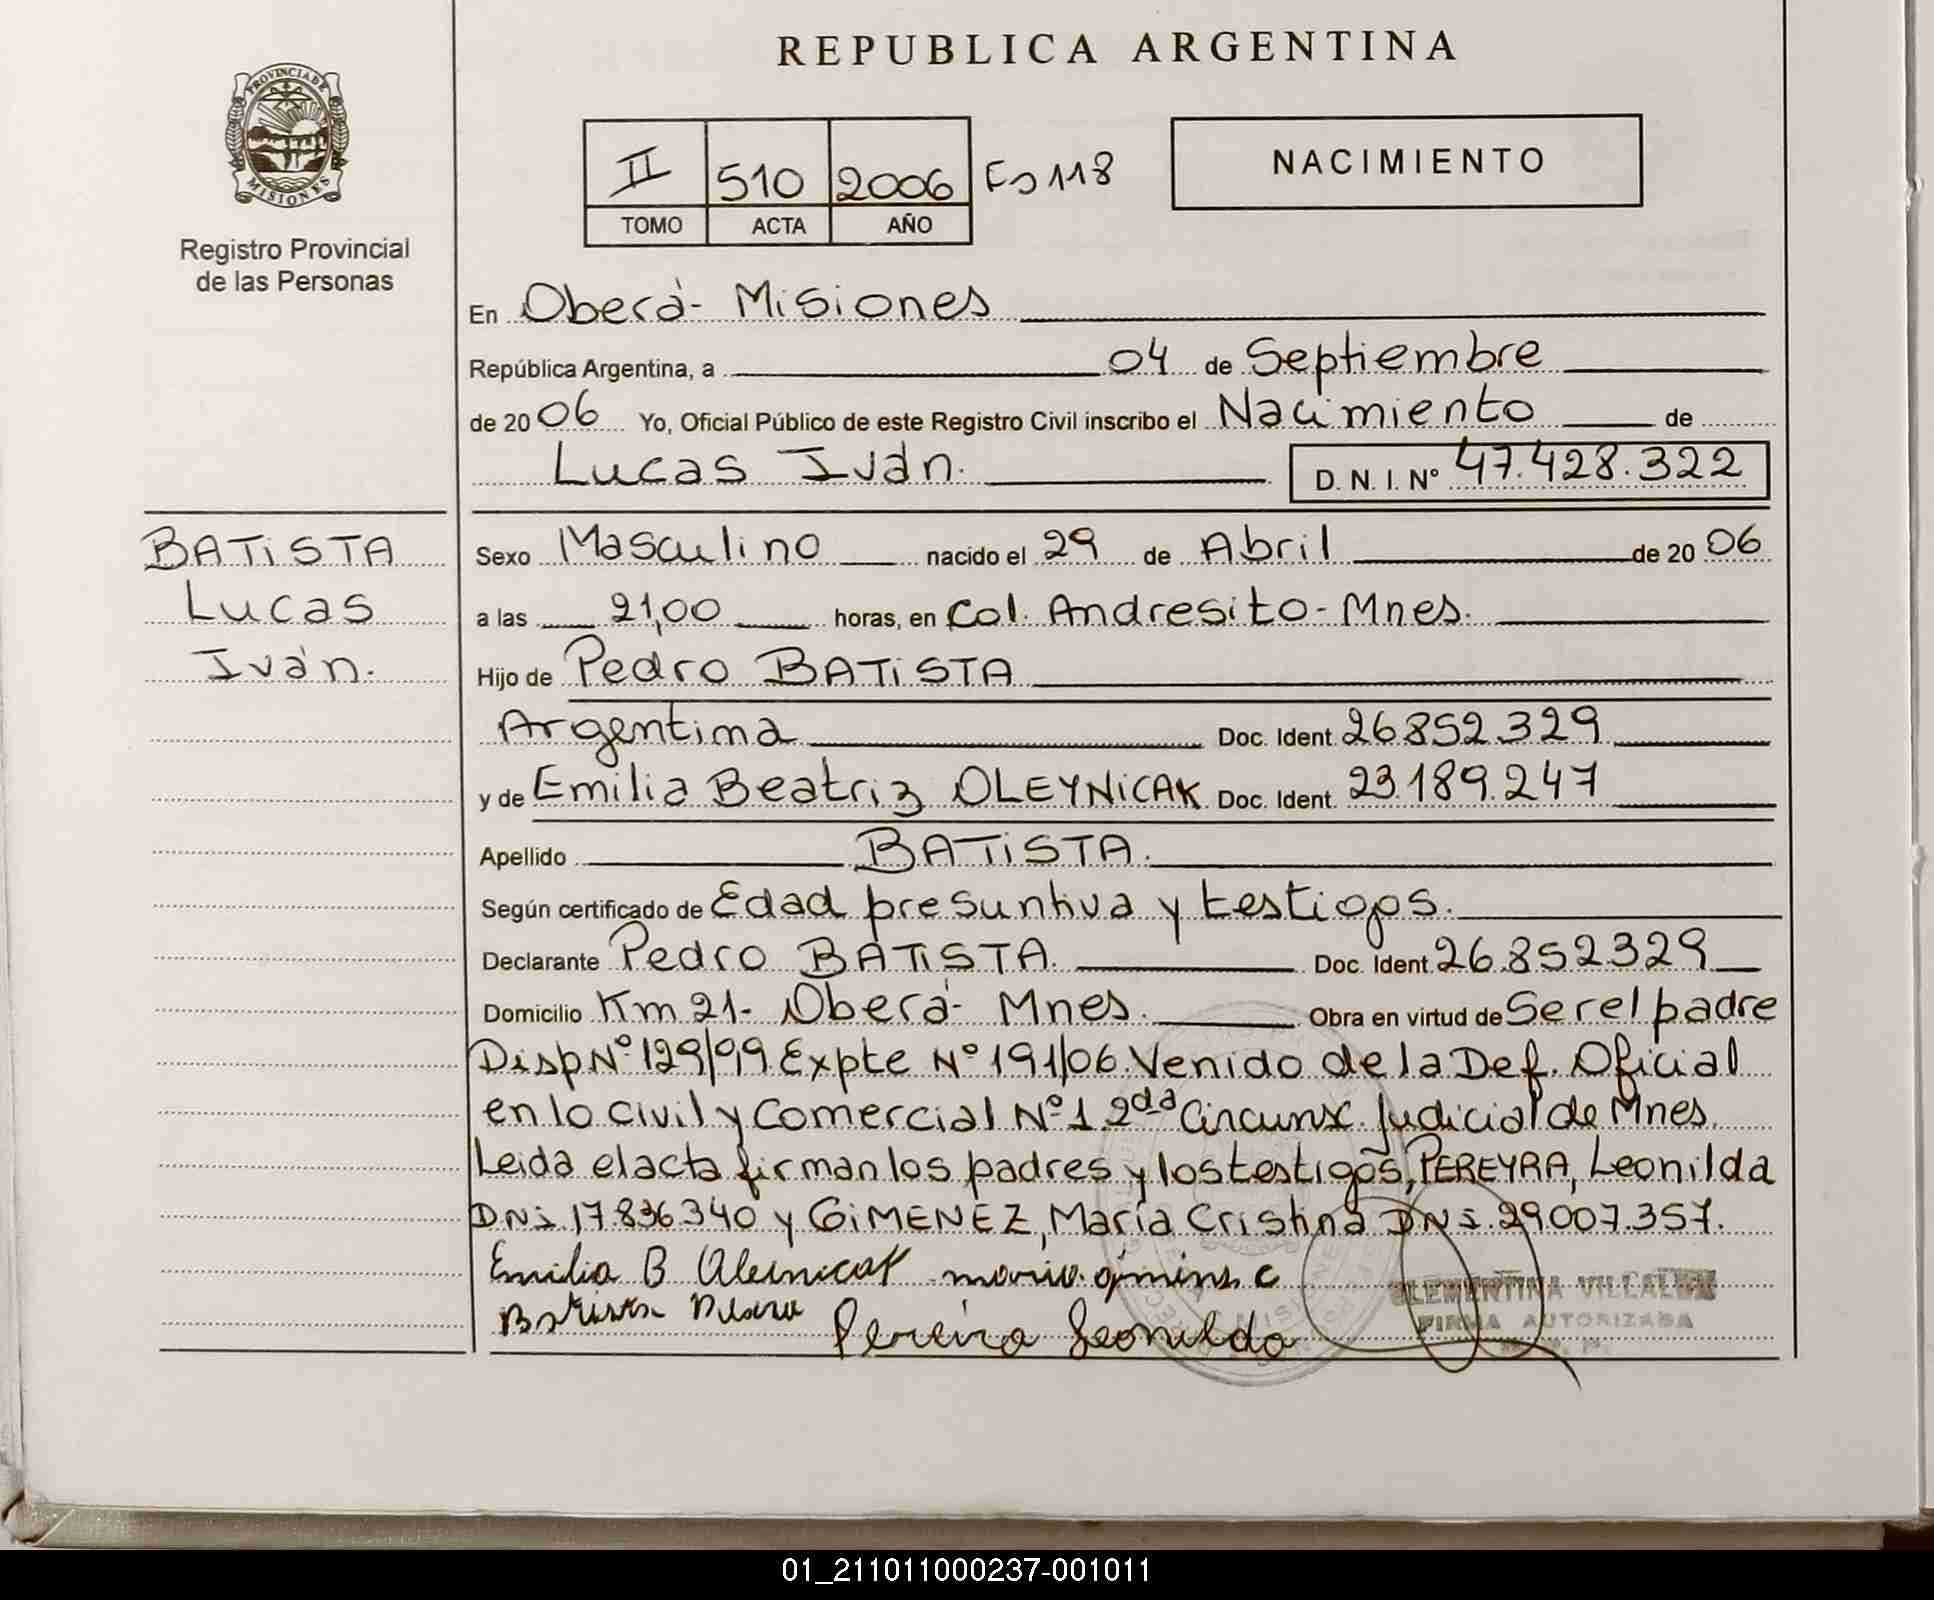 REPUBLICA ARGENTINA
PROVINCIA DE
MISIONES
Registro Provincial
de las Personas
II 510 2006 Fº 118
TOMO ACTA AÑO
NACIMIENTO
En Oberá - Misiones
República Argentina, a 04 de Septiembre
de 20 06 Yo, Oficial Público de este Registro Civil inscribo el Nacimiento de
Lucas Iván. D. N. I. Nº 47.428.322
BATiSTA
Lucas
Iván.
Sexo Masculino nacido el 29 de Abril de 20 06
a las 21,00 horas, en Col. Andresito - Mnes.
Hijo de Pedro BATiSTA
Argentina Doc. Ident. 26.852.329
y de Emilia Beatriz OLEYNiCAK Doc. Ident. 23.189.247
Apellido BATiSTA.
Según certificado de Edad presuntiva y testigos.
Declarante Pedro BATiSTA. Doc. Ident. 26.852.329
Domicilio Km 21 - Oberá - Mnes. Obra en virtud de Ser el padre
Disp Nº 129/99 Expte Nº 191/06. Venido de la Def. Oficial
en lo Civil y Comercial Nº 1 2da Circunsc. Judicial de Mnes.
Leida el acta firman los padres y los testigos, PEREYRA, Leonilda
DNi. 17.836.340 y GiMENEZ, María Cristina DNi. 29.007.357.
Emilia B
Pereira Leonilda
CLEMENTINA VILLALBA
FIRMA AUTORIZADA
01_211011000237-001011